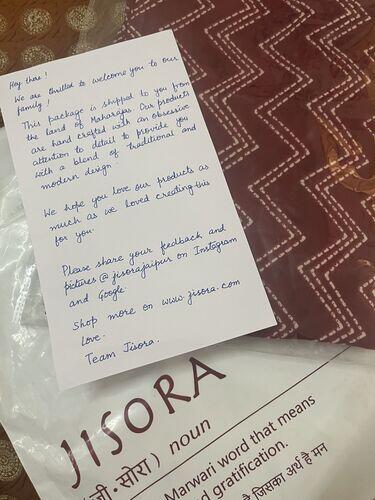 Hey there!
We are thrilled to welcome you to our
family!
This package is shipped to you from
the land of Maharajas. Our products
are hand crafted with an obsessive
attention to detail to provide you
with a blend of traditional and
modern design.
We hope you love our products as
much as we loved creating this
for you.
Please share your feedback and
pictures @ jisorajaipur on Instagram
and Google.
Shop more on www.jisora.com
Love.
Team Jisora.
JISORA
(जी·सोरा) noun
Marwari word that means
gratification.
है जिसका अर्थ है मन